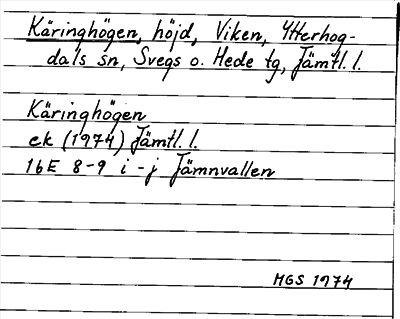 Käringhögen, höjd, Viken, Ytterhog-
dals sn, Svegs o. Hede tg, Jämtl. l.
Käringhögen
ek (1974) Jämtl. l.
16E 8-9 i-j Jämnvallen
MGS 1974